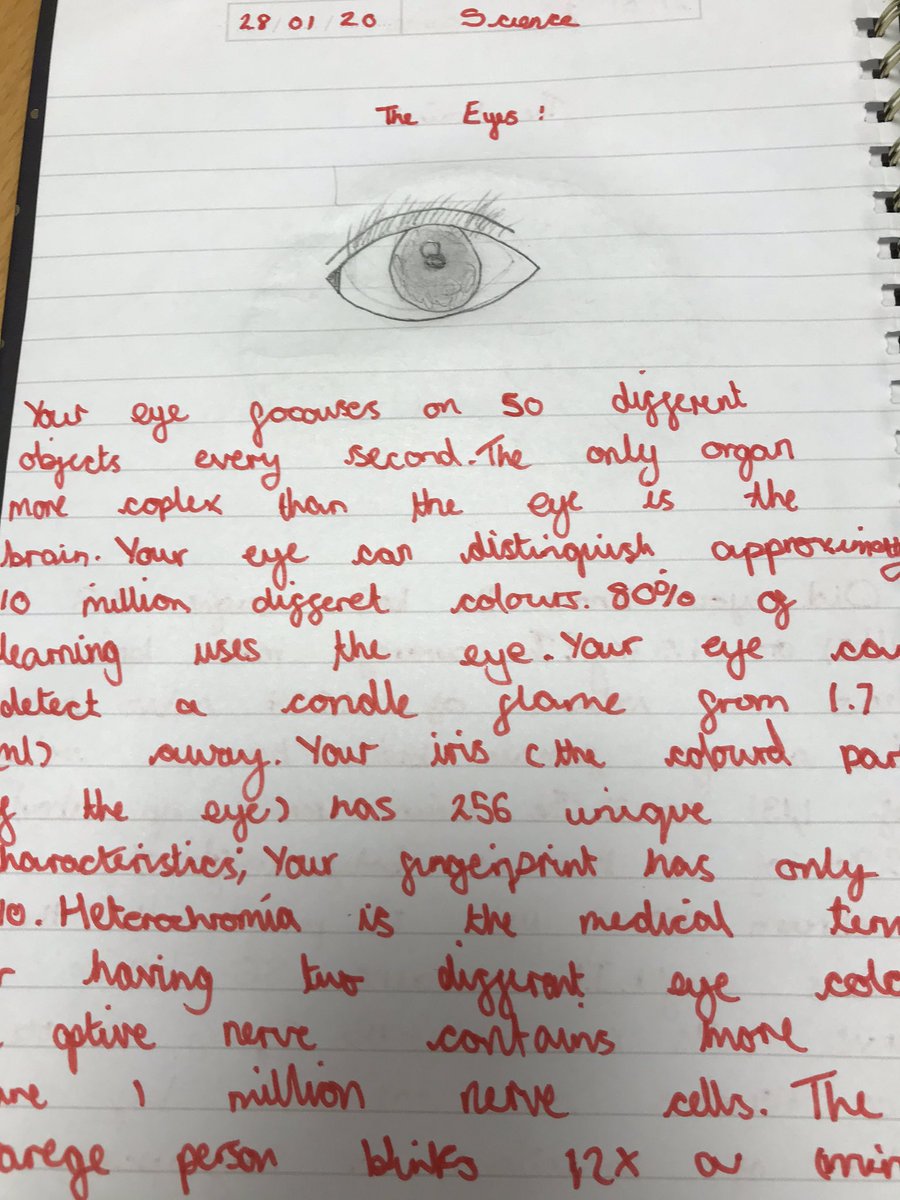 28/01/20 Science
The Eyes!
Your eye focouses on 50 different
objects every second. The only organ
more coplex than the eye is the
brain. Your eye can distinguish approximatly
10 million differet colours. 80% of
learning uses the eye. Your eye can
detect a candle flame from 1.7
away. Your iris (the colourd par
the eye) has 256 unique
haracteristics; Your fingerprint has only
10. Heterochromia is the medical term
having two differant eye colo
optive nerve contains more
1 million nerve cells. The
arege person blinks 12x a min